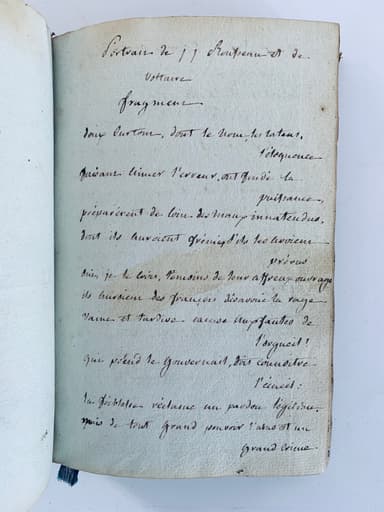 Portrait de j j Rousseau et de
Voltaire
fragment
deux surtout, dont le nom, les talens,
l'éloquence
faisant aimer l'erreur, ont fondé la
puissance,
préparèrent de loin des maux innatendus,
dont ils auroient frémi s'ils les avoient
prévus
oui, je le crois, témoins de leur affreux ouvrage
ils auroient des françois désavoué la rage
vaine et tardive excuse aux fautes de
l'orgueil!
qui prend le gouvernail, doit connoitre
l'écueil:
la foiblesse réclame un pardon légitime.
mais de tout grand pouvoir l'abus est un
grand crime